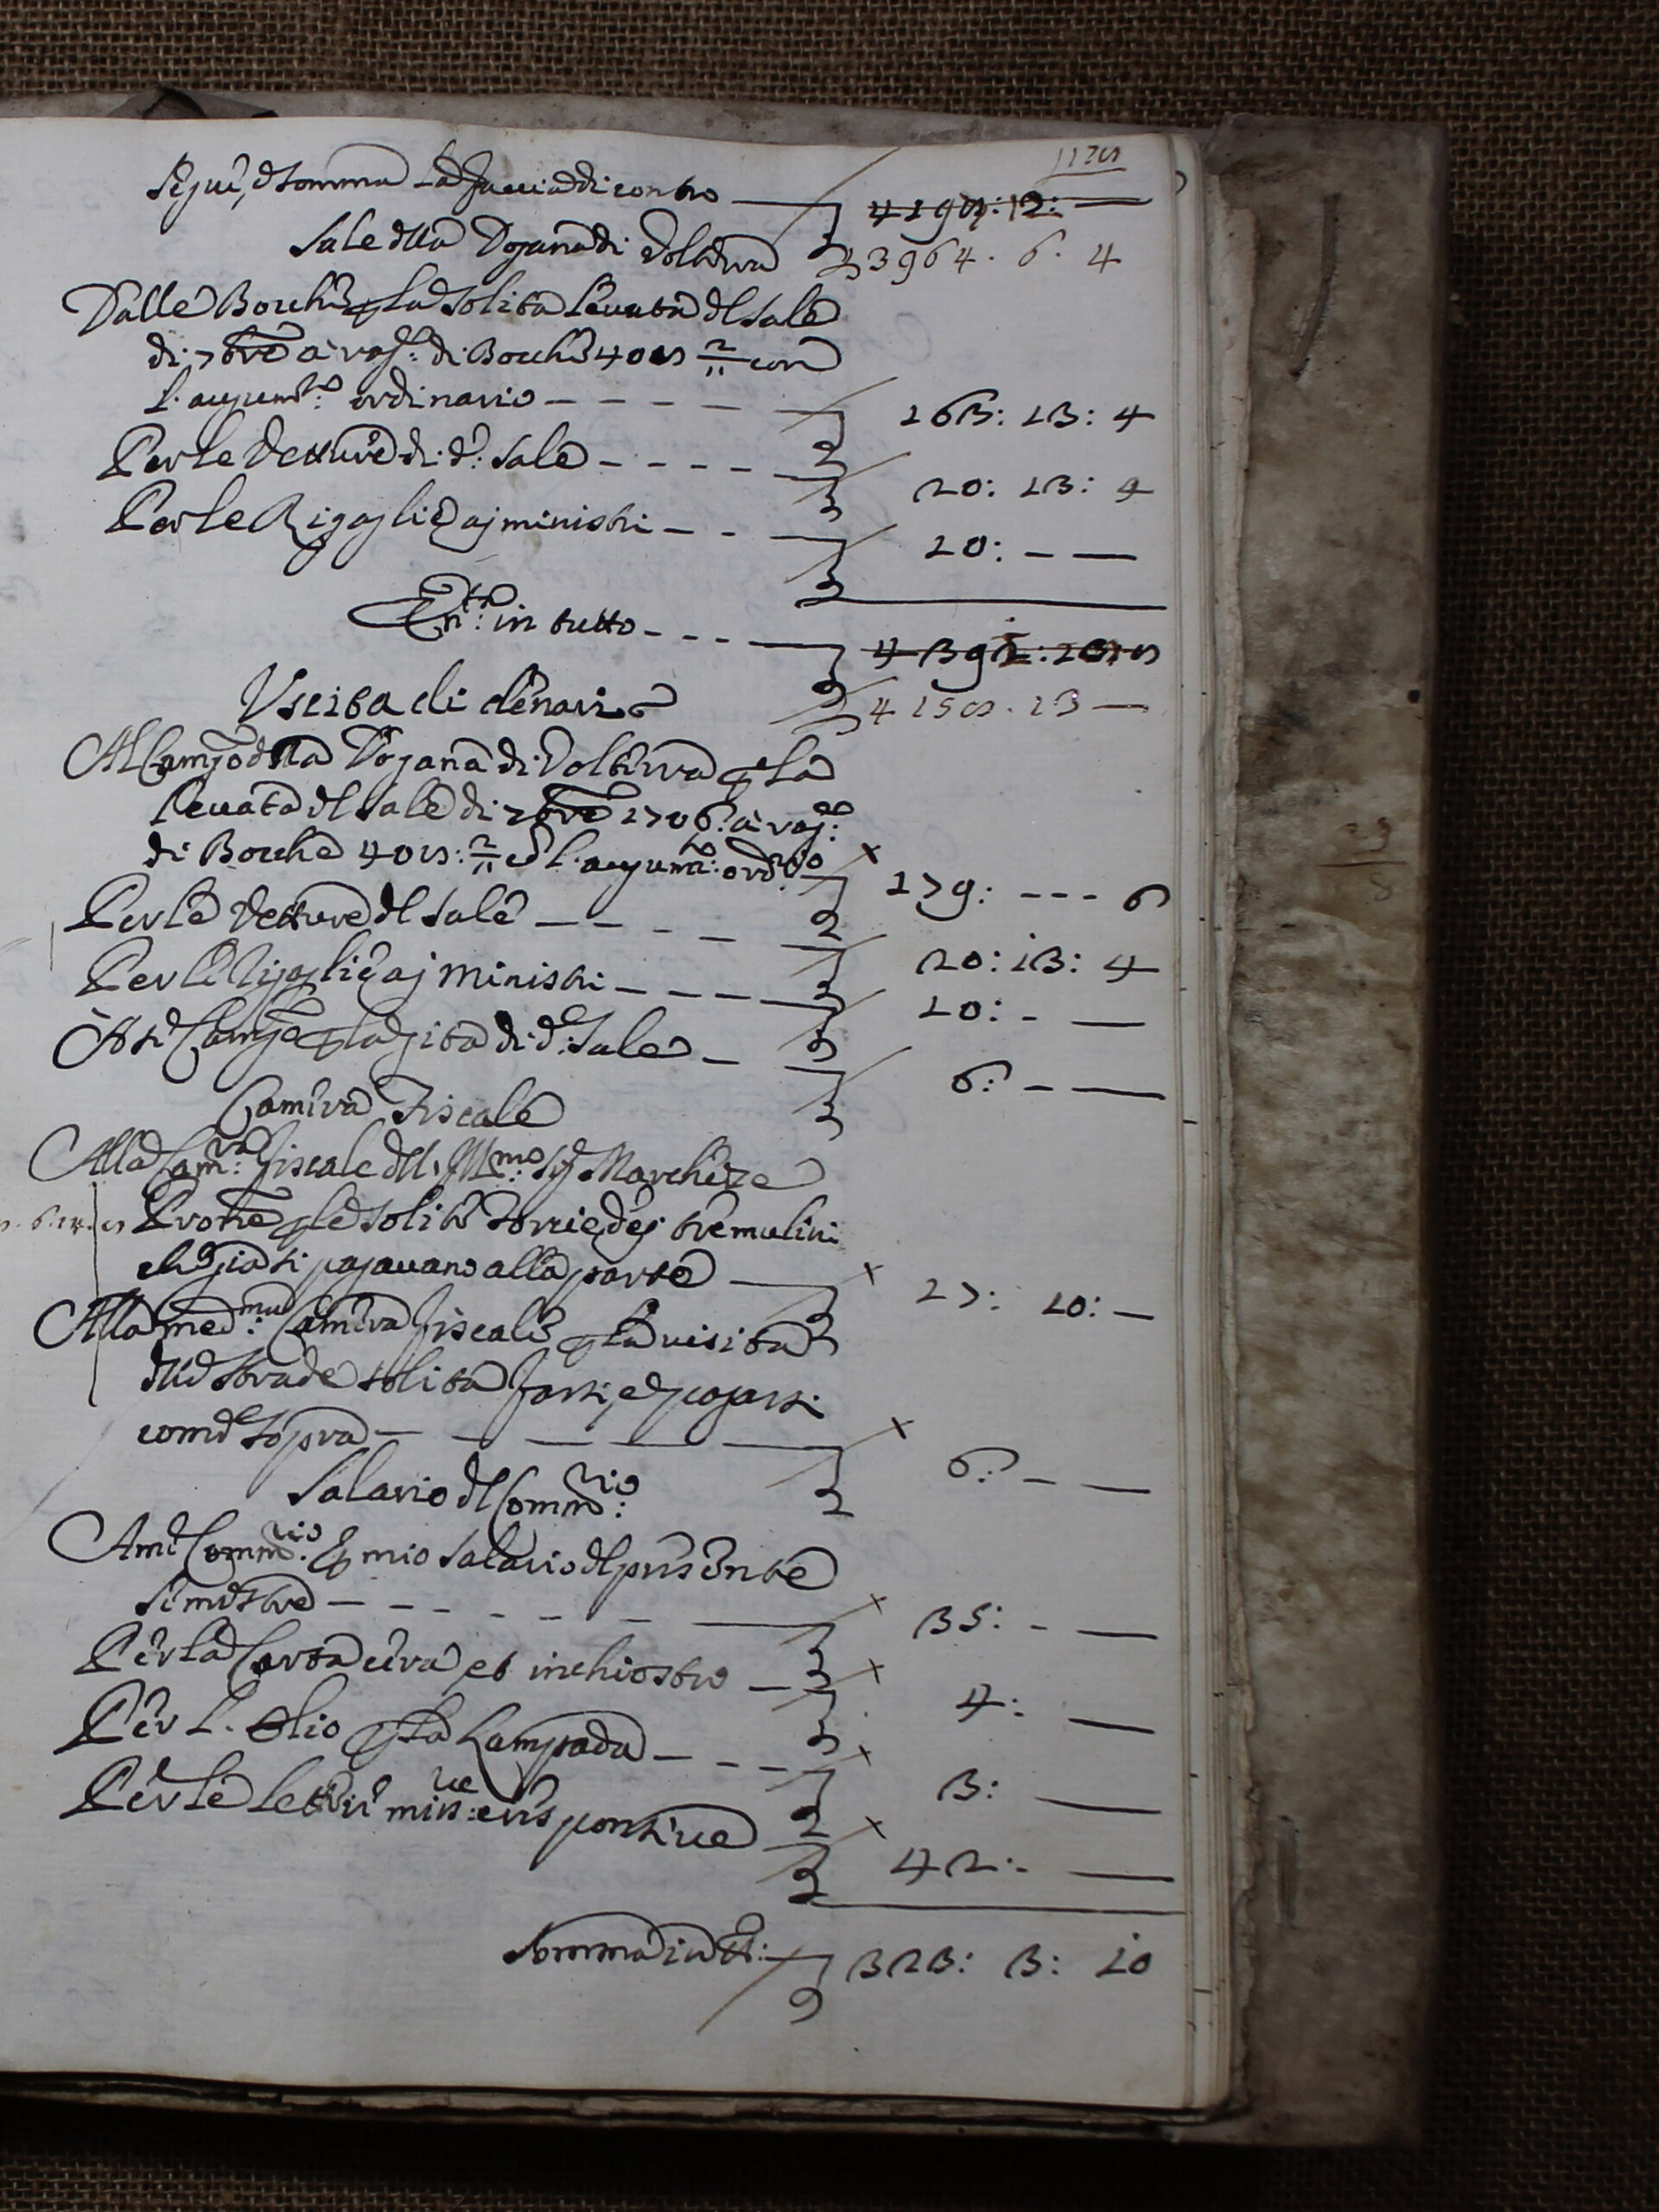 Segue, e somma la facciata di contro 4194:12:—
Sale della Dogana di Volterra 3964. 6. 4
Dalle Bocche p la solita levata del sale
di 7bre a rag: di Bocche 405 2/11 con
l'augumto: ordinario — — — — 163: 13: 4
Per le vetture di do: sale — — — — 20: 13: 4
Per le Rigaglie aj ministri — — 10: — —
Entta: in tutto — — — 
4158. 13 —
Uscita di denari
Al Camgo della Dogana di Volterra p la
levata del sale di 7bre 1706. a rag:
di Bocche 405: 2/11 e l'augumto: ordrio 179: - - - 6
Per le vetture del sale — — — — 20: 13: 4
Per le Rigaglie aj Ministri — — — — 10: - —
p la gita di do: sale — 6: — —
Camera Fiscale
Alla Camra: fiscale dell' Illmo: Sig Marchese
p le solite dej tre mulini
che già si pagavano alla parte — 17: 10: —
Alla medma: Camera fiscale p la visita
delle strade solita farsi, e pagarsi
come sopra — — — — — 6: — —
Salario del Commrio:
A me Commrio: p mio salario del presente
semestre — — — - — — — 35: - —
Per la Carta cera et inchiostro — 4: —
Per l'olio p la Lampada — — — 3: —
Per le lettere missve: e responsive 42: - —
Somma in tt: 323: 3: 10